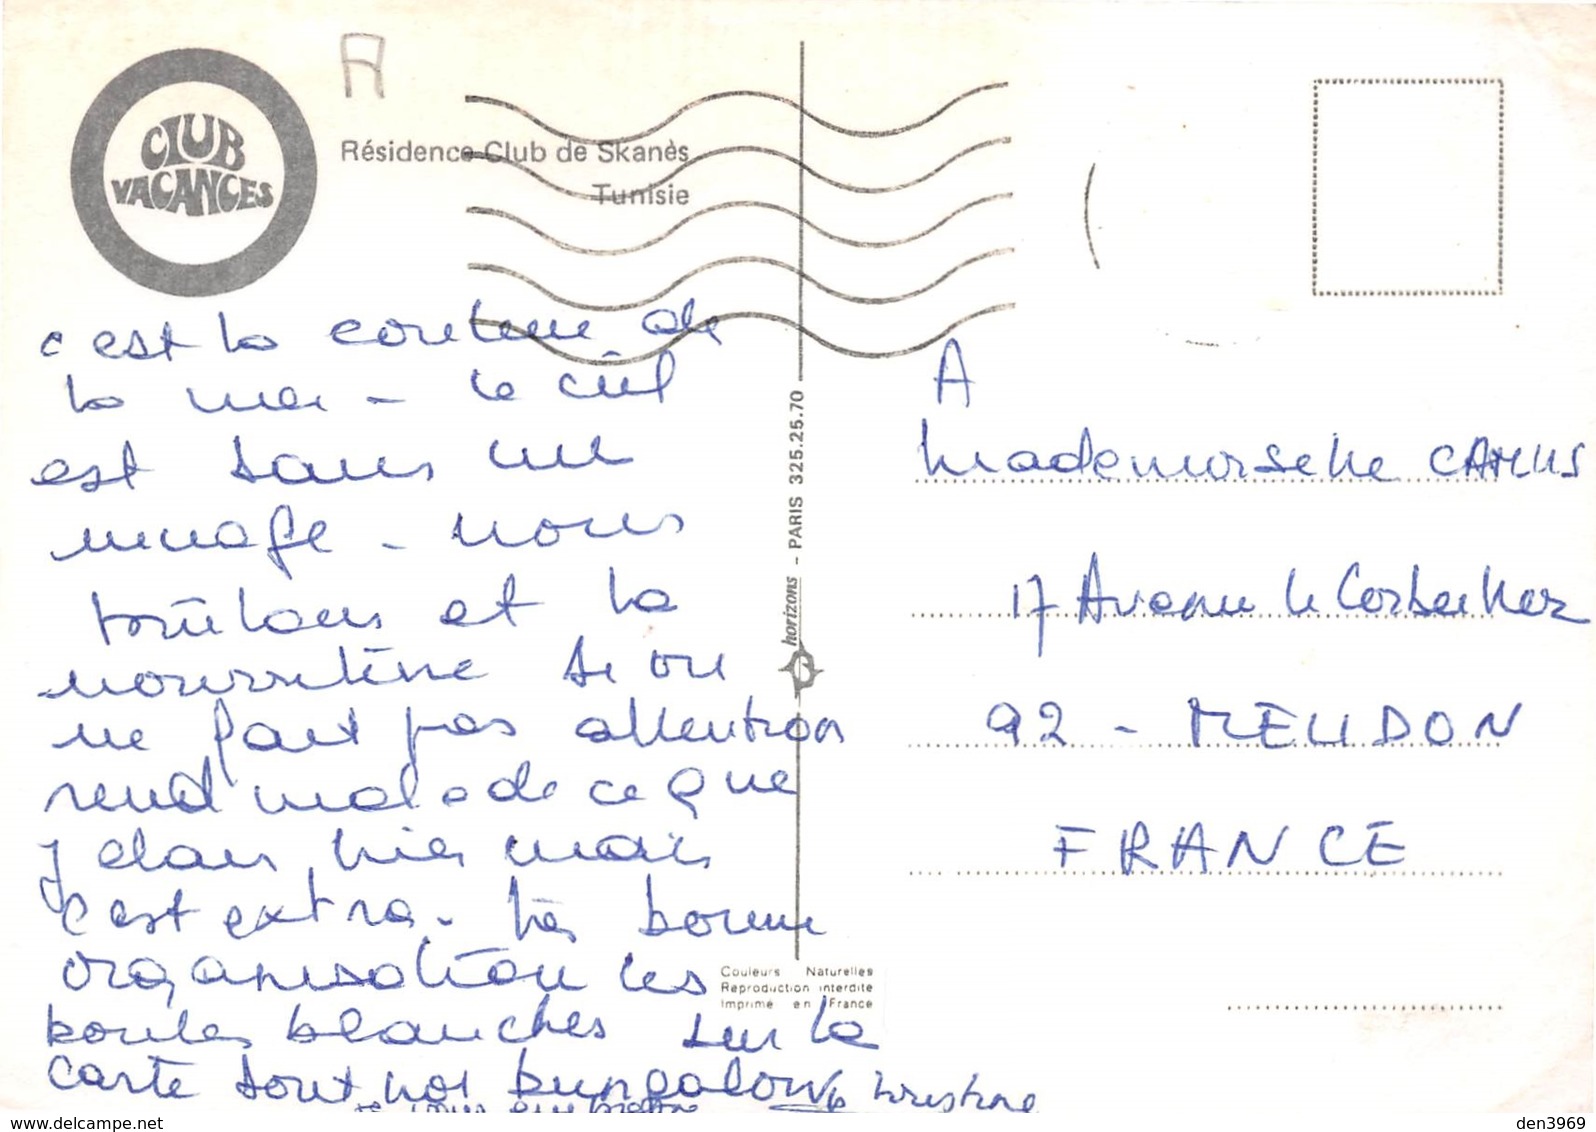 CLUB
VACANCES
A
Résidence-Club de Skanès
Tunisie
c'est la couleur de
la mer - le ciel
est sans un
nuage - nous
et la
nourriture si on
ne fait pas attention
rend malade ce que
j'étais hier mais
c'est extra - très bonne
organisation les
boules blanches sur la
carte sont nos bungalows
je vous embrasse
horizons - PARIS 325.25.70
Couleurs Naturelles
Reproduction interdite
Imprimé en France
A
Mademoiselle CAMUS
17 Avenue le Corbeiller
92 - MEUDON
FRANCE
delcampe.net
den3969